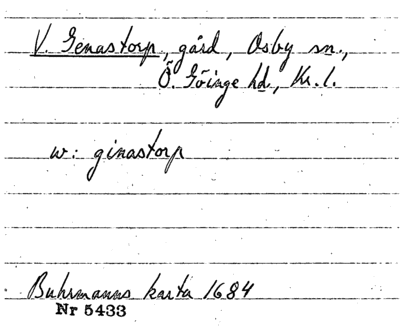 V. Genastorp, gård, Osby sn.,
Ö. Göinge hd., Kr. l.
w: ginastorp
Buhrmanns karta 1684
Nr 5433